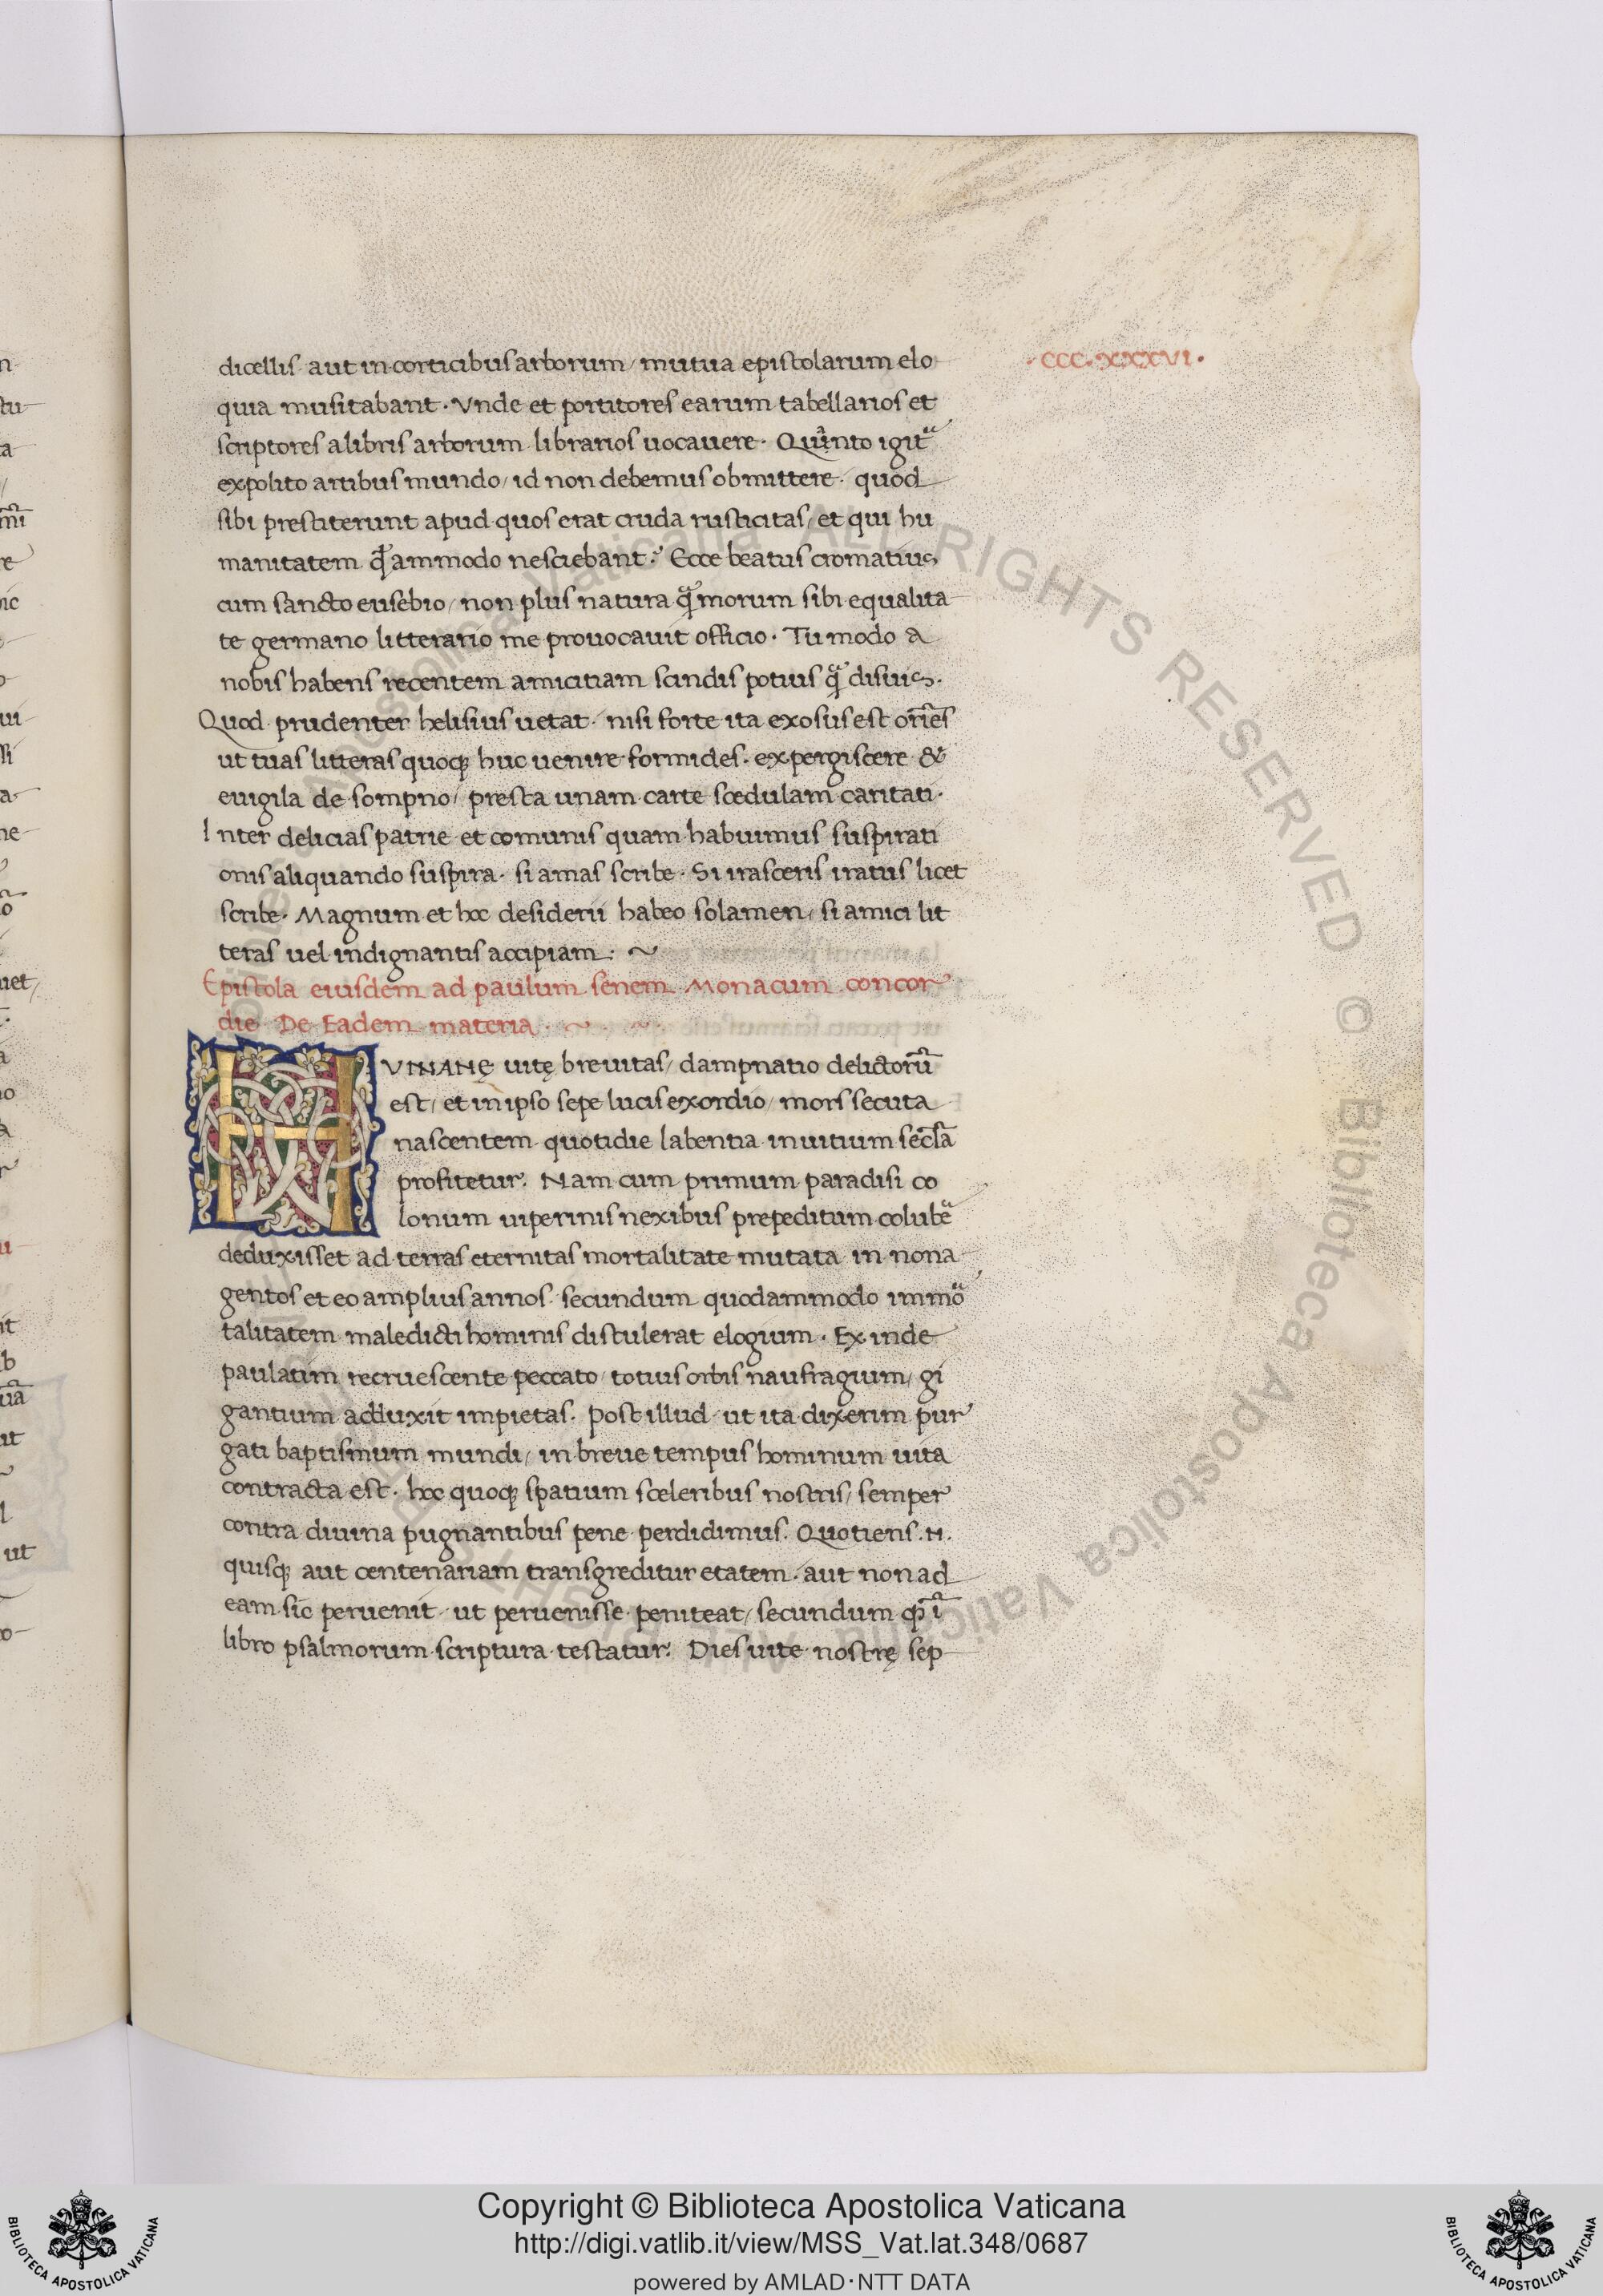 dicellis aut in corticibus arborum / mutua epistolarum elo
·CCC·XXXVI·
quia musitabant · Vnde et portitores earum tabellarios et
scriptores a libris arborum librarios uocauere · Quãnto igitᵃ
expolito artibus mundo / id non debemus obmittere · quod
sibi prestiterunt apud quos erat cruda rusticitas / et qui hu
manitatem q̃ammodo nesciebant ·' Ecce beatus cromatius
cum sancto eusebio / non plus natura q̃ᵃ morum sibi equalita
te germano litterario me prouocauit officio · Tu modo a
nobis habens recentem amicitiam scindis potius q̃ᵃ disuis ·
Quod prudenter helisius uetat · nisi forte ita exosus est oriẽs
ut tuas litteras quoqꝫ huc uenire formides · expergiscere &
euigila de sompno / presta unam carte scedulam caritati ·
Inter delicias patrie et comunis quam habuimus suspirati
onis aliquando suspira · si amas scribe · Si irasceris iratus licet
scribe · Magnum et hoc desiderii habeo solamen / si amici lit
teras uel indignantis accipiam : ~
Epistola eiusdem ad paulum senem Monacum concor
die De Eadem materia · ~ · ~ ·
HVMANĘ uitę breuitas / dampnatio delictorũ
est / et in ipso sepe lucis exordio / mors secuta
nascentem quotidie labentia in uitium secl̃a
profitetur · Nam cum primum paradisi co
lonum uiperinis nexibus prepeditum colubeᵃ
deduxisset ad terras eternitas mortalitate mutata in nona
gentos et eo amplius annos · secundum quodammodo immoᵃ
talitatem maledicti hominis distulerat elogium · Ex inde
paulatim recruescente peccato / totius orbis naufragium / gi
gantium adduxit impietas · Post illud ut ita dixerim pur
gati baptismum mundi / in breue tempus hominum uita
contracta est · hoc quoqꝫ spatium sceleribus nostris / semper
contra diuina pugnantibus pene perdidimus · Quotiens · N ·
quisqꝫ aut centenariam transgreditur etatem · aut non ad
eam sic peruenit ut peruenisse peniteat / secundum qꝫ ĩ
libro psalmorum scriptura testatur · Dies uite nostrę sep
Copyright © Biblioteca Apostolica Vaticana
http://digi.vatlib.it/view/MSS_Vat.lat.348/0687
powered by AMLAD·NTT DATA
BIBLIOTECA APOSTOLICA VATICANA
BIBLIOTECA APOSTOLICA VATICANA